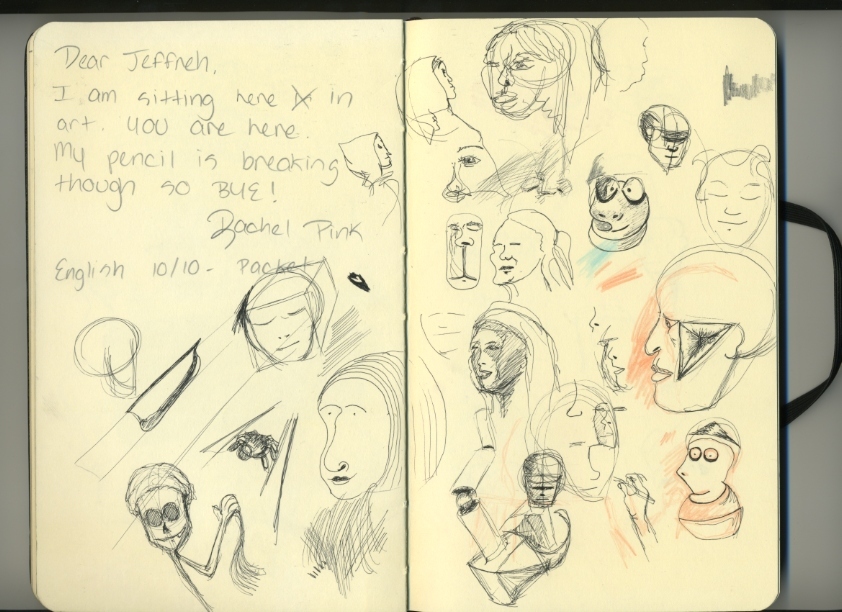 Dear Jeffneh,
I am sitting here in
art. YOU are here.
My pencil is breaking
though so BYE!
Rachel Pink
English 10/10 - Packet